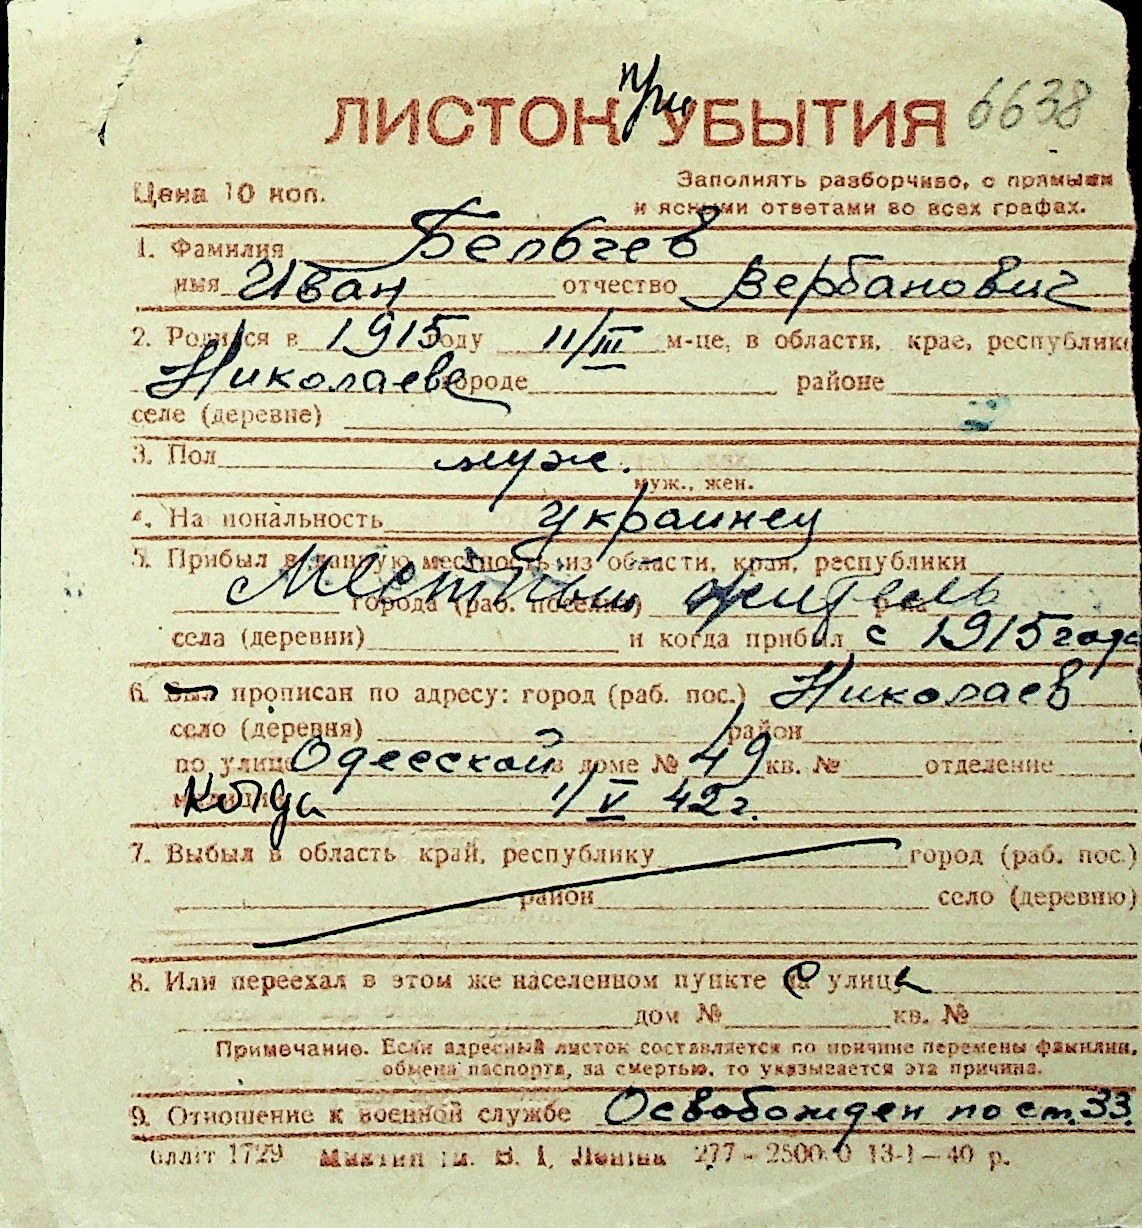 при
ЛИСТОК УБЫТИЯ 6638
Цена 10 коп.
Заполнять разборчиво, с прямыми
и ясными ответами во всех графах.
1. Фамилия Бельчев
имя Иван отчество Вербанович
2. Родился в 1915 году 11/III м-це, в области, крае, республике
Николаеве городе районе
селе (деревне)
3. Пол муж.
муж., жен.
4. Национальность украинец
5. Прибыл в данную местность из области, края, республики
Местный житель
города (раб. поселка) р-на
села (деревни) и когда прибыл с 1915 года
6. Был прописан по адресу: город (раб. пос.) Николаев
село (деревня) район
по улице Одесской в доме № 49 кв. № отделение
милиции Когда 1/V 42 г.
7. Выбыл в область край, республику город (раб. пос.)
район село (деревню)
8. Или переехал в этом же населенном пункте с улицы
дом № кв. №
Примечание. Если адресный листок составляется по причине перемены фамилии,
обмена паспорта, за смертью, то указывается эта причина.
9. Отношение к военной службе Освобожден по ст. 33.
1729 В. І. Леніна 277 – 13-1–40 р.